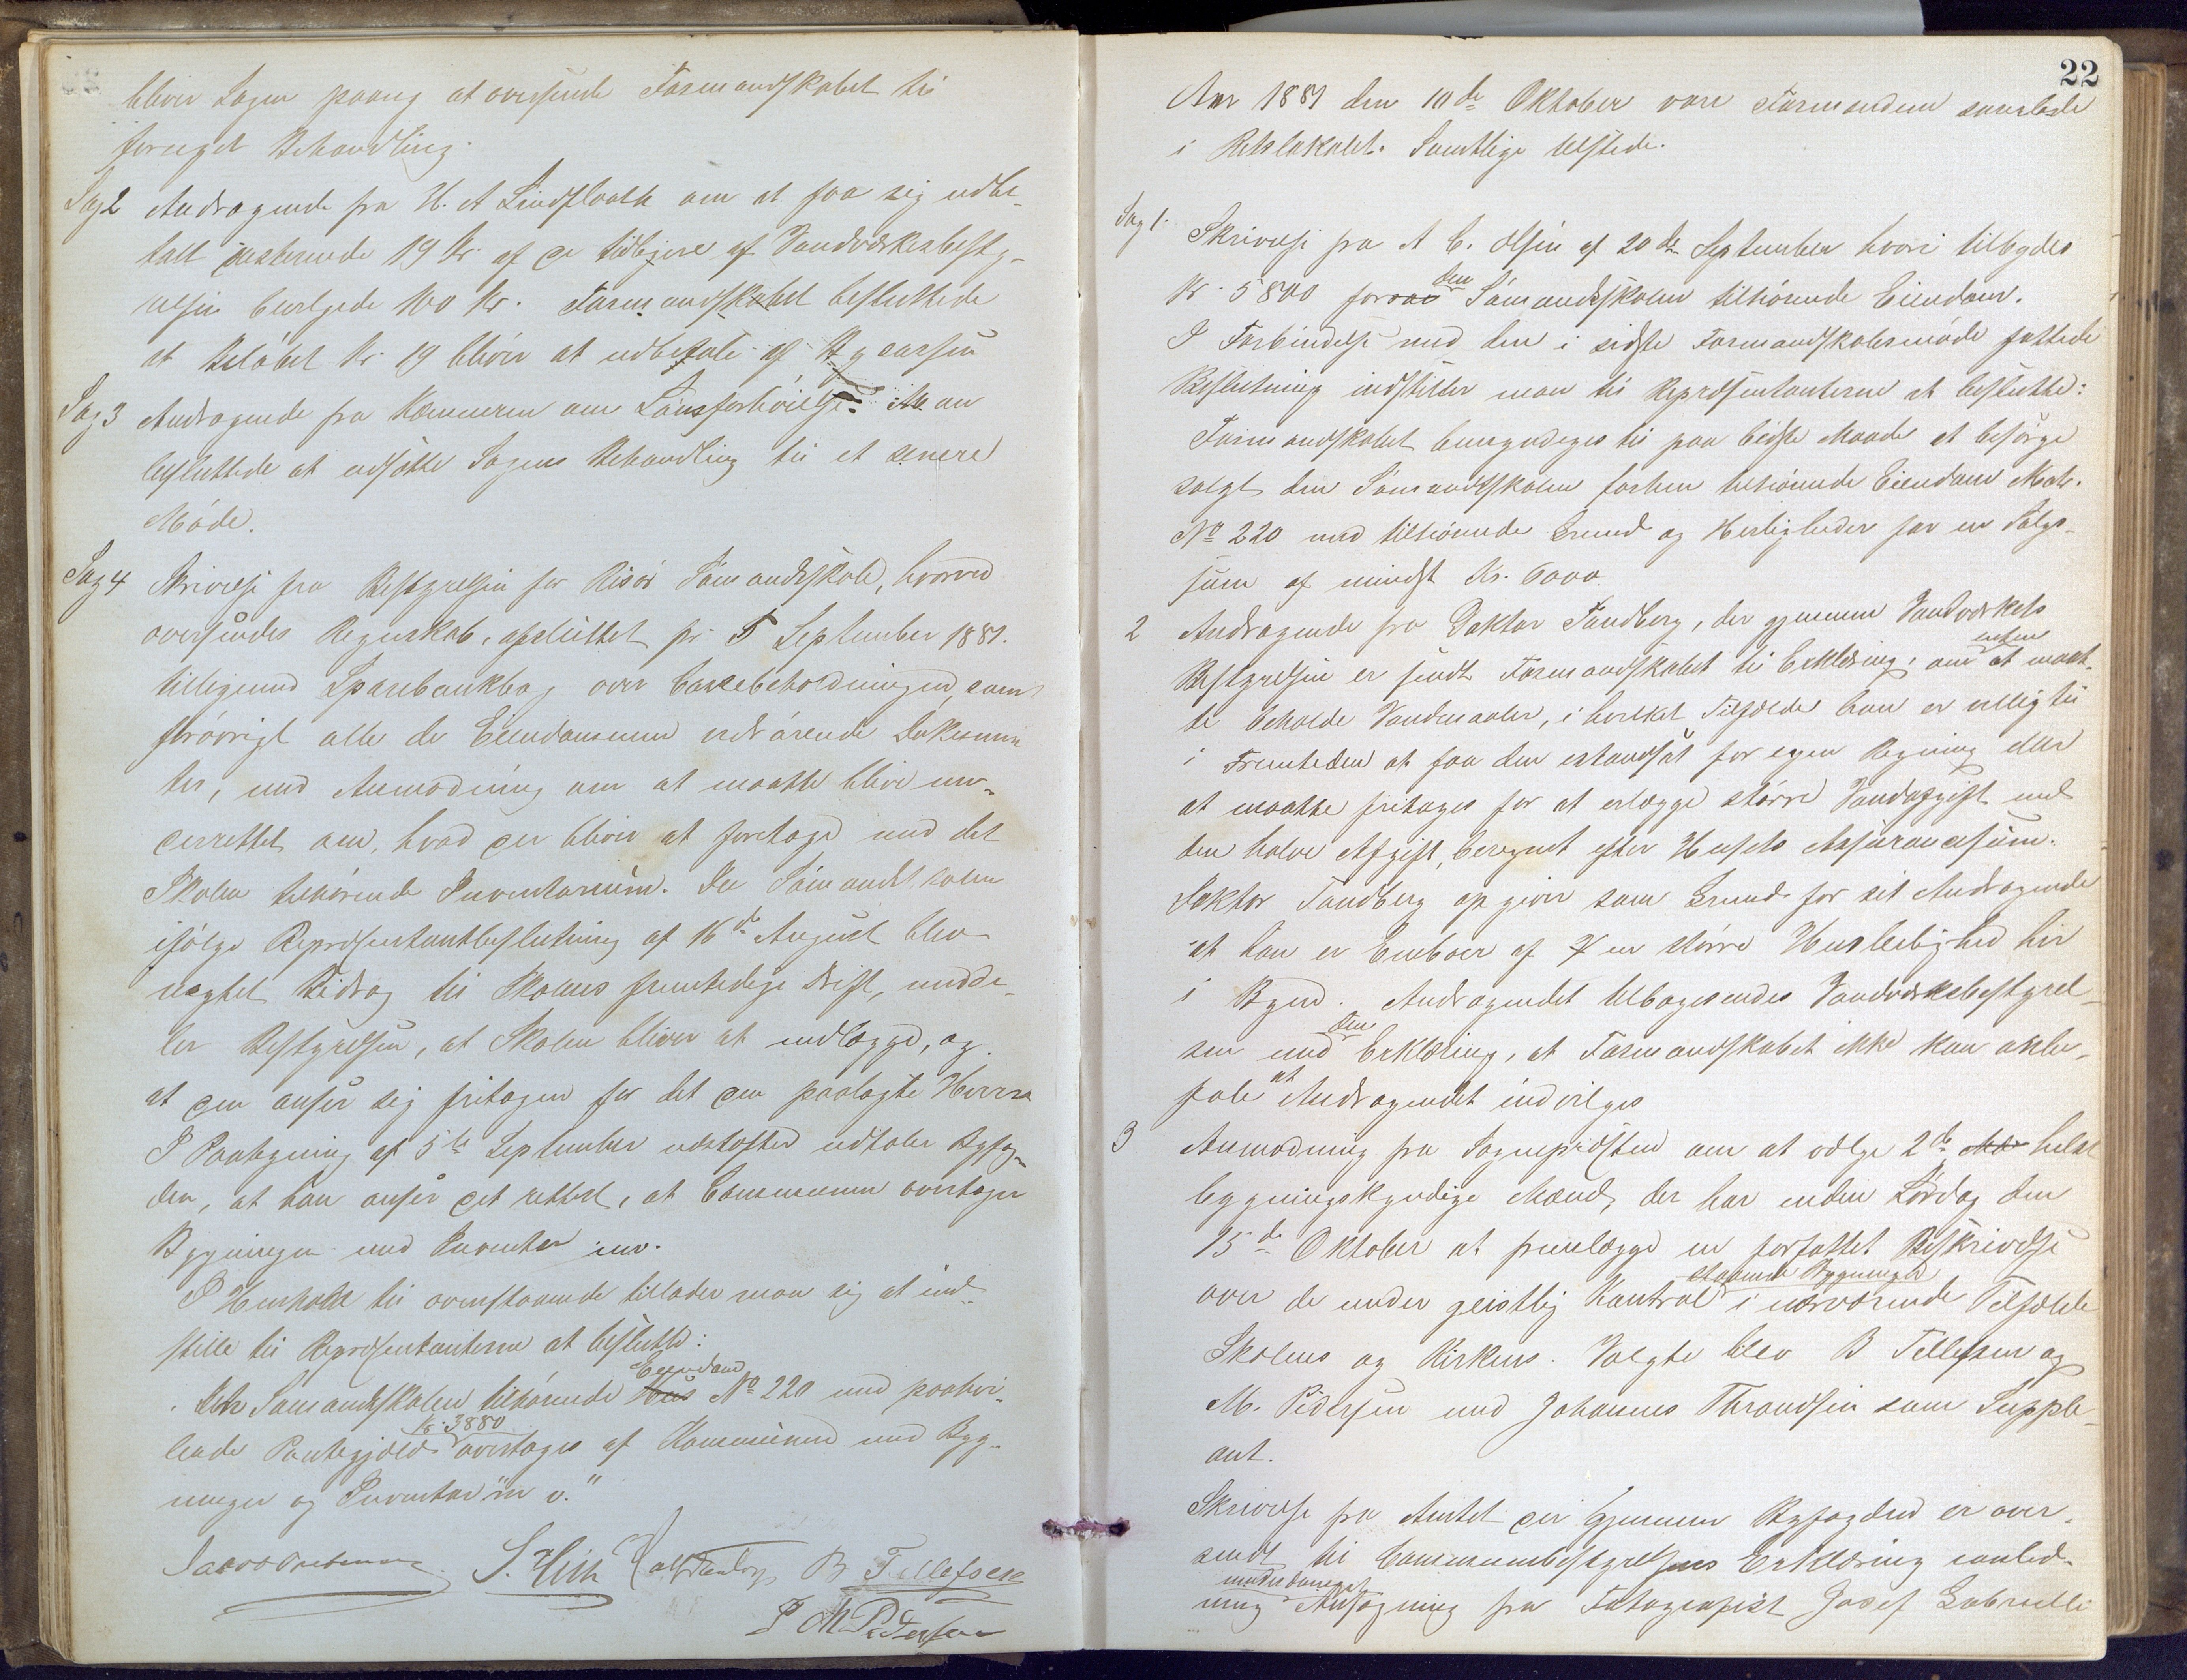 bliver Sagen paany at oversende Formandskabet til
fornyet Behandling.
Sag 2 Andragende fra H. A Lindstoath om at faa sig udbe-
talt resterende 19 Kr. af de tidligere af Vandværksbesty-
relsen bevilgede 100 Kr. Formandskabet besluttede
at Beløbet Kr. 19 bliver at udbetale af Bycassen
Sag 3 Andragende fra Kæmneren om Lønsforhøielse. Man
besluttede at udsætte Sagens Behandling til et senere
Møde.
Sag 4 Skrivelse fra Bestyrelsen for Risør Sømandsskole, hvorved
oversendes Regnskab, afsluttet pr 5 September 1881.
tilligemed Sparebankbog over Cassebeholdningen, samt
forøvrigt alle de Eiendommen vedrørende Dokumen
ter, med Anmodning om at maatte blive un-
derrettet om, hvad der bliver at foretage med det
Skolen tilhørende Inventarium. Da Sømandsskolen
ifølge Repræsentantbeslutning af 16de August blev
nægtet Bidrag til Skolens fremtidige Drift, medde-
ler Bestyrelsen, at Skolen bliver at nedlægge, og
at den anser sig fritagen for det den paalagte Hverv
I Paategning af 5te September udtaler Byfog-
den, at han anser det rettest, at Communen overtager
Bygningen med Inventar m.v.
I Henhold til ovenstaaende tillader man sig at ind-
stille til Repræsentanterne at beslutte:
Den Sømandsskolen tilhørende Hus Eiendom No 220 med paahvi-
lende Pantegjæld Kr. 3880 overtages af Kommunen med Byg-
ninger og Inventar m v."
S. Hick B Tellefsen
P M Pedersen
22
Aar 1881 den 10de Oktober vare Formændene samlede
i Retslokalet. Samtlige tilstede.
Sag 1. Skrivelse fra A C. Olsen af 20de September hvori tilbydes
Kr. 5800 for den Sømandsskolen tilhørende Eiendom.
I Forbindelse med den i sidste Formandskabsmøde fattede
Beslutning indstiller man til Repræsentanterne at beslutte:
Formandskabet bemyndiges til paa bedste Maade at besørge
solgt den Sømandsskolen forhen tilhørende Eiendom Matr.
No 220 med tilhørende Grund og Herligheder for en Salgs-
sum af mindst Kr. 6000.
2 Andragende fra Doktor Tandberg, der gjennem Vandværkets
Bestyrelsen er sendt Formandskabet til Erklæring, om enten at maat-
te beholde Vandmaaler, i hvilket Tilfælde han er villig til
i Fremtiden at faa den istandsat for egen Regning eller
at maatte fritages for at erlægge større Vandafgift end
den halve Afgift, beregnet efter Husets Assurancesum.
Doktor Tandberg opgiver som Grund for sit Andragende
at han er Beboer af en større Husleilighed her
i Byen. Andragendet tilbagesendes Vandværksbestyrel-
sen med den Erklæring, at Formandskabet ikke kan anbe-
fale at Andragendet indvilges
3 Anmodning fra Sognepræsten om at vælge 2de helst
bygningskyndige Mænd, der har inden Lørdag den
15de Oktober at fremlægge en forfattet Beskrivelse
over de under geistlig Kontrol staaende Bygninger i nærværende Tilfælde
Skolens og Kirkens. Valgte blev B Tellefsen og
M. Pedersen med Johannes Throndsen som Supple-
ant.
Skrivelse fra Amtet der gjennem Byfogden er over-
sendt til Communebestyrelsens Erklæring anled-
ning Ansøgning fra Fotografist Josef Gabrielli